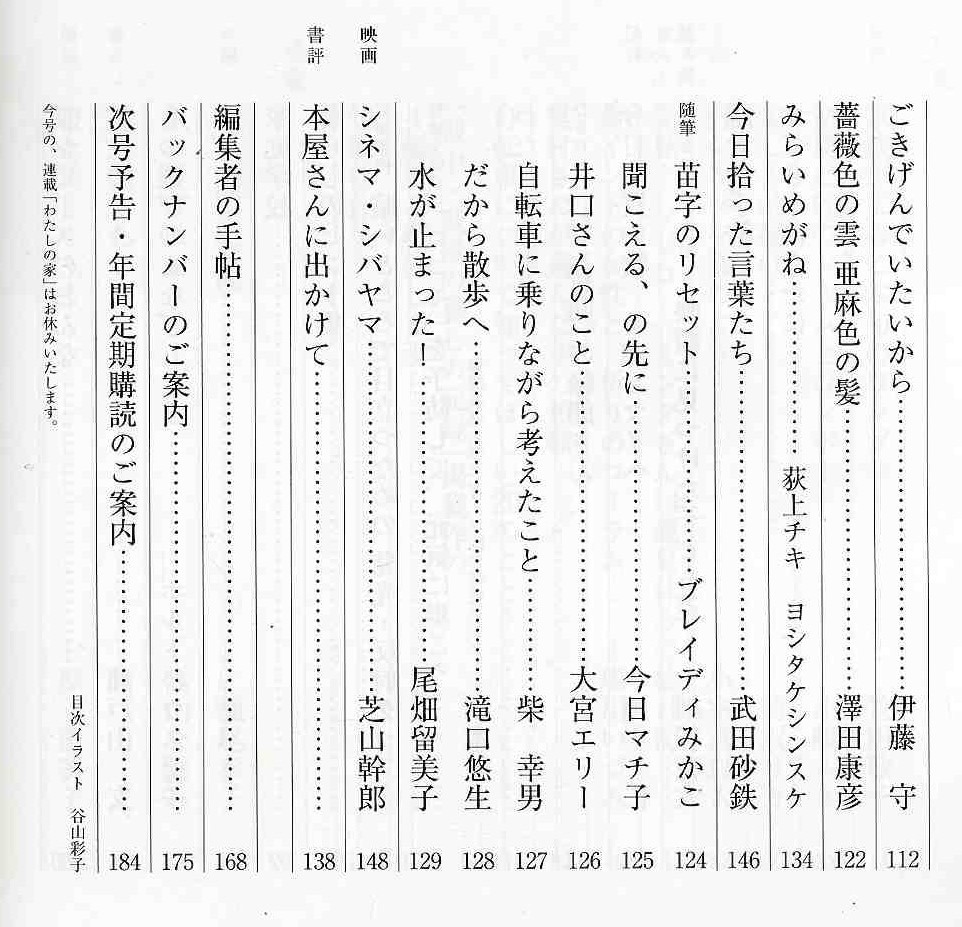 ごきげんでいたいから……伊藤　守 112
薔薇色の雲 亜麻色の髪……澤田康彦 122
みらいめがね……荻上チキ　ヨシタケシンスケ 134
今日拾った言葉たち……武田砂鉄 146
随筆 苗字のリセット……ブレイディみかこ 124
聞こえる、の先に……今日マチ子 125
井口さんのこと……大宮エリー 126
自転車に乗りながら考えたこと……柴　幸男 127
だから散歩へ……滝口悠生 128
水が止まった！……尾畑留美子 129
映画 シネマ・シバヤマ……芝山幹郎 148
書評 本屋さんに出かけて…… 138
編集者の手帖…… 168
バックナンバーのご案内…… 175
次号予告・年間定期購読のご案内…… 184
目次イラスト　谷山彩子
今号の、連載「わたしの家」はお休みいたします。